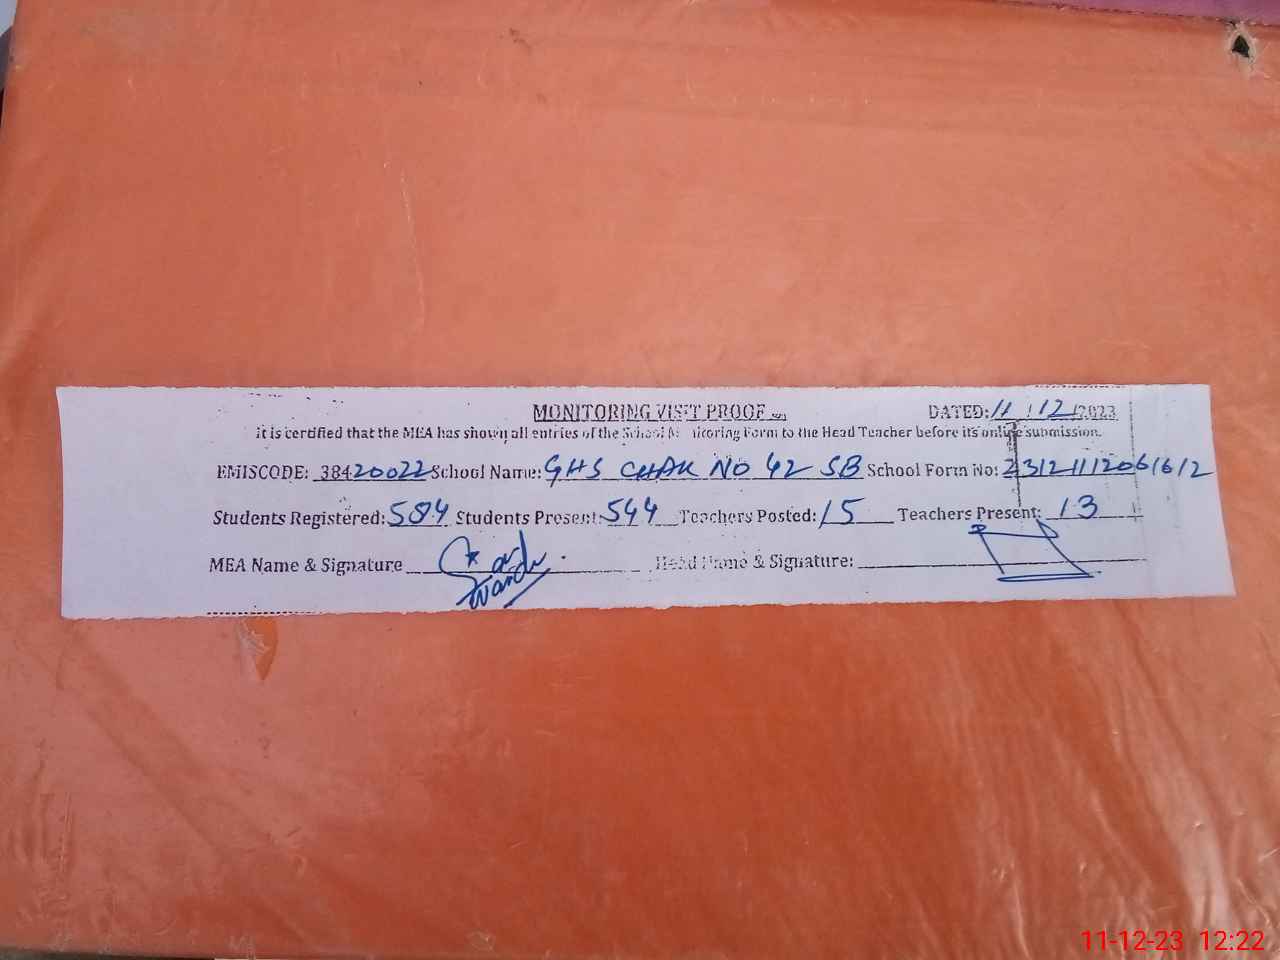 MONITORING VISIT PROOF
DATED: 11/12/2023
it is certified that the MEA has shown all entries of the School Monitoring Form to the Head Teacher before its online submission.
EMISCODE: 38420022 School Name: GHS CHAK NO 42 SB School Form No: 23121112061612
Students Registered: 584 Students Present: 544 Teachers Posted: 15 Teachers Present: 13
MEA Name & Signature Head Name & Signature:
11-12-23 12:22